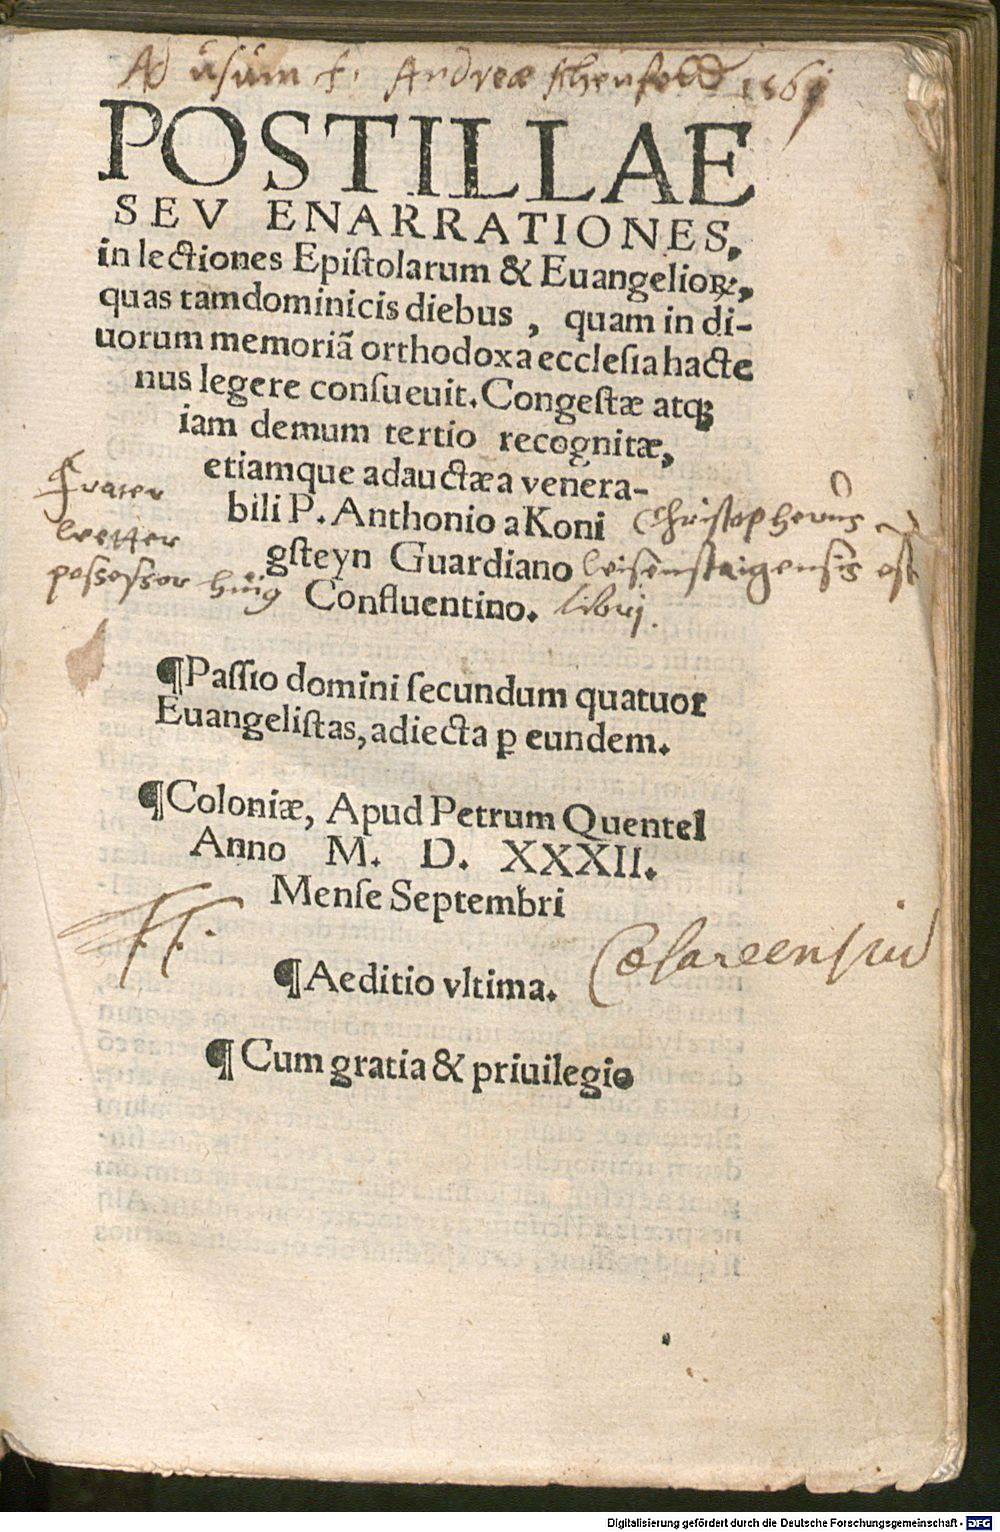 Ad usum f. Andreæ schenfeldt 156
POSTILLAE
SEV ENARRATIONES,
in lectiones Epistolarum & Euangelioꝝ,
quas tamdominicis diebus , quam in di-
uorum memoriã orthodoxa ecclesia hacte
nus legere consueuit. Congestæ atqꝫ
iam demum tertio recognitæ,
etiamque adauctæ a venera-
bili P. Anthonio a Koni
gsteyn Guardiano
Confluentino.
Frater Christopherus
wisenstaigensis est
possessor huiꝰ libri.
¶Passio domini secundum quatuor
Euangelistas, adiecta ꝑ eundem.
¶Coloniæ, Apud Petrum Quentel
Anno M. D. XXXII.
Mense Septembri
¶Aeditio vltima.
¶Cum gratia & priuilegio
Digitalisierung gefördert durch die Deutsche Forschungsgemeinschaft - DFG